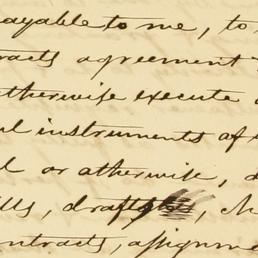 payable to me, to
agreement
otherwise execute
instruments of
or otherwise,
drafts, ch
contracts, assignm